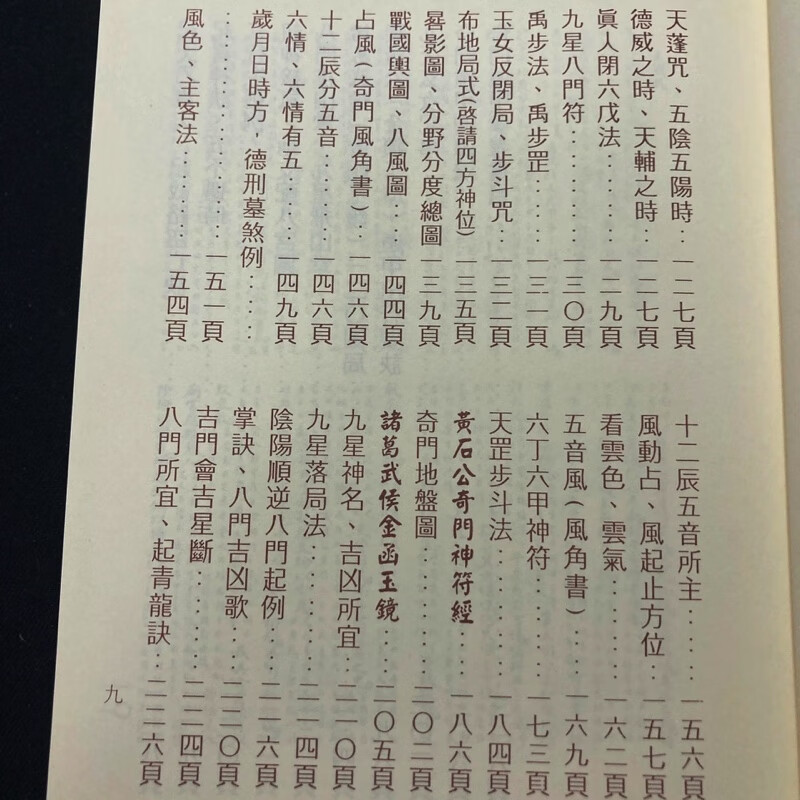 天蓬咒、五陰五陽時：一二七頁
德威之時、天輔之時：一二七頁
眞人閉六戊法：：：：一二九頁
九星八門符：：：：：一三〇頁
禹步法、禹步罡：：：一三一頁
玉女反閉局、步斗咒：一三二頁
布地局式(啓請四方神位)一三五頁
晷影圖、分野分度總圖一三九頁
戰國輿圖、八風圖：：一四四頁
占風(奇門風角書)：：一四六頁
十二辰分五音：：：：一四六頁
六情、六情有五：：：一四九頁
歲月日時方，德刑墓煞例：：：
：：：：：：：：：：一五一頁
風色、主客法：：：：一五四頁
十二辰五音所主：：：一五六頁
風動占、風起止方位：一五七頁
看雲色、雲氣：：：：一六二頁
五音風(風角書)：：：一六九頁
六丁六甲神符：：：：一七三頁
天罡步斗法：：：：：一八四頁
黃石公奇門神符經：：一八六頁
奇門地盤圖：：：：：二〇二頁
諸葛武侯金函玉鏡：：二〇五頁
九星神名、吉凶所宜：二一〇頁
九星落局法：：：：：二一四頁
陰陽順逆八門起例：：二一六頁
掌訣、八門吉凶歌：：二二〇頁
吉門會吉星斷：：：：二二四頁
八門所宜、起青龍訣：二二六頁
九